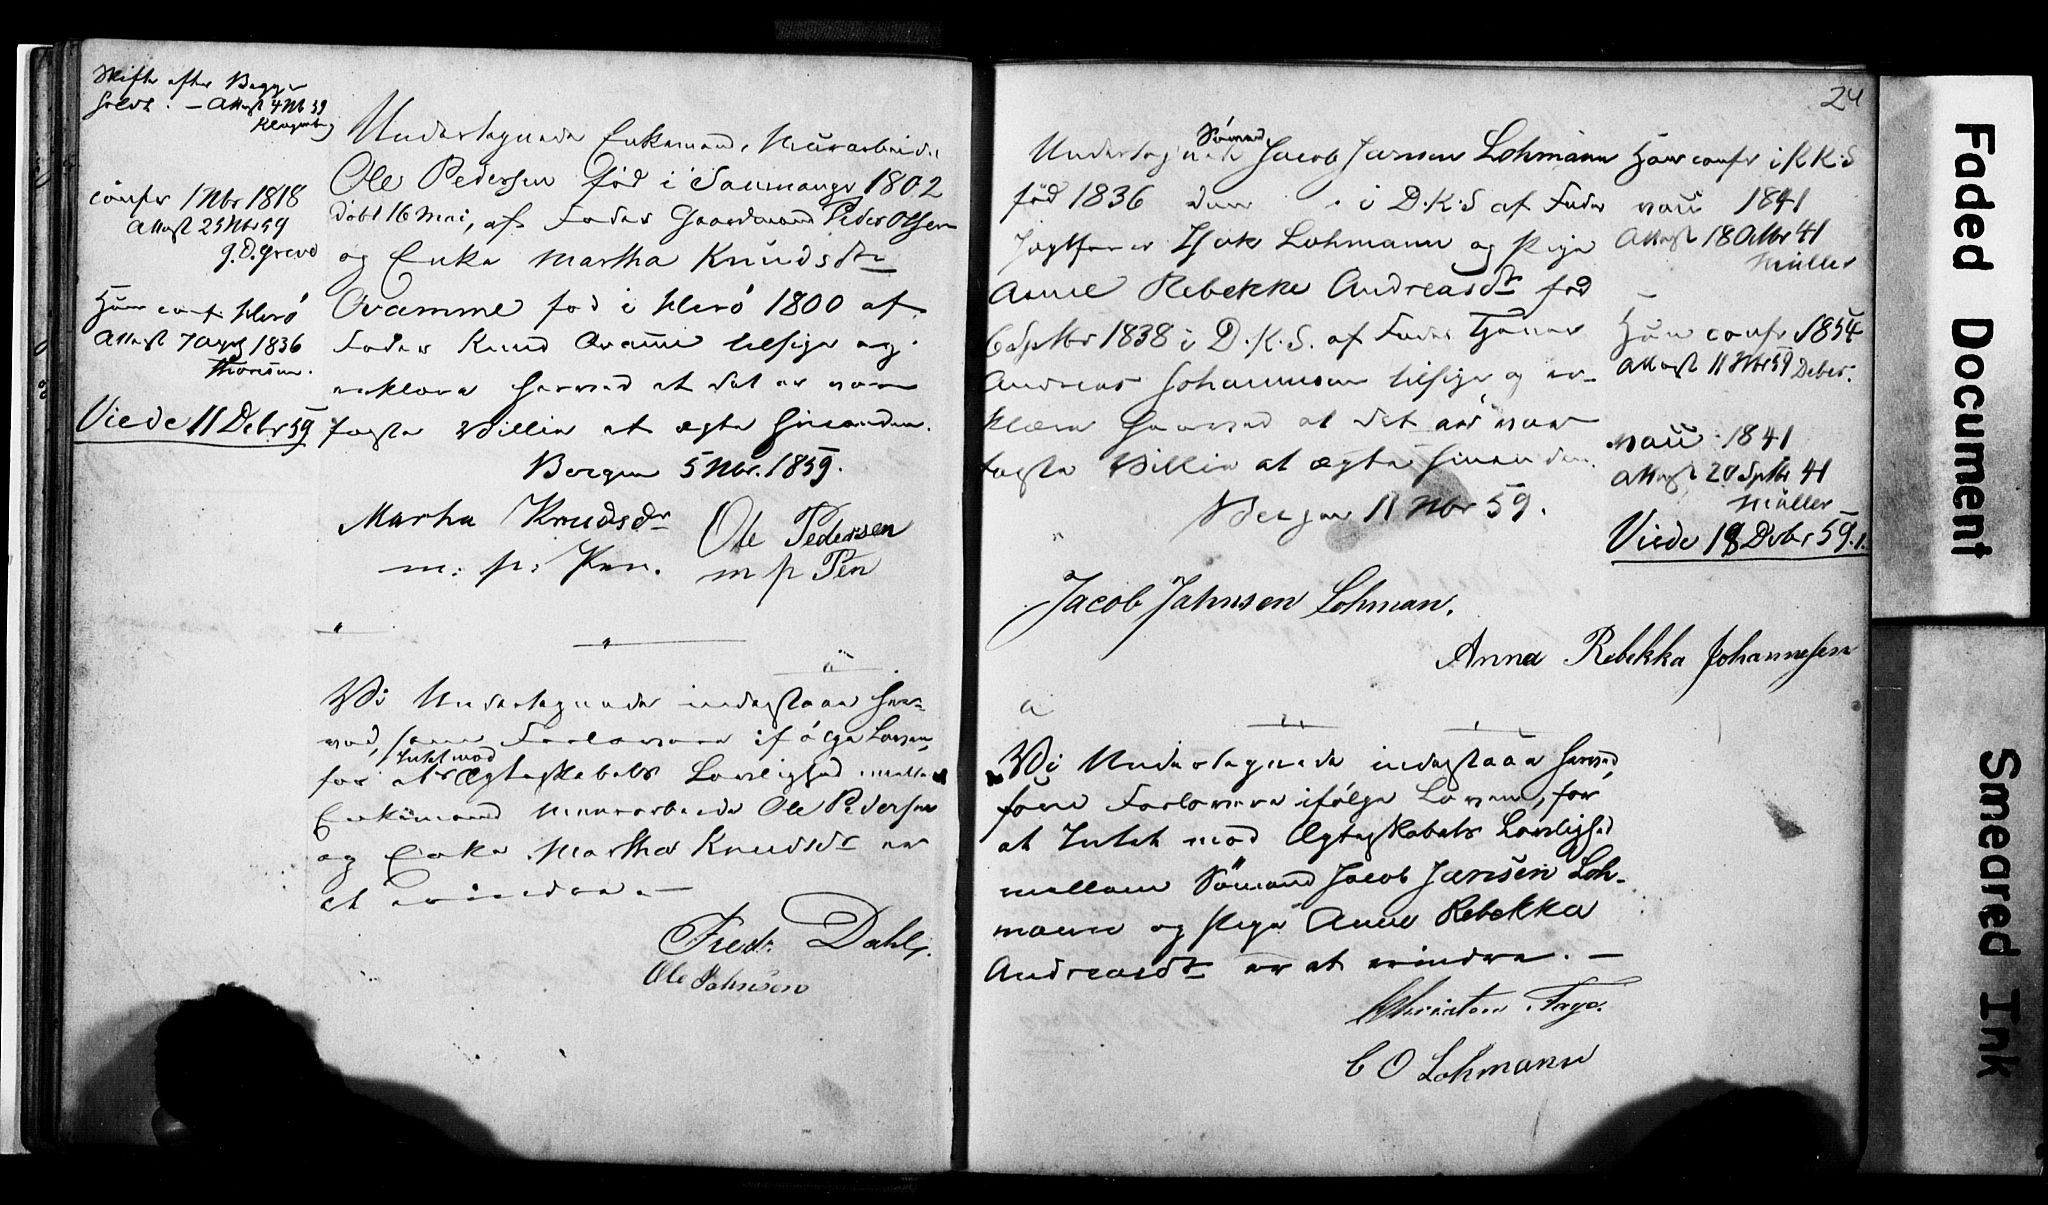 Skifte efter Begge
holdt. – Attest 4 Nbr 59
confr 1 Nbr 1818
Attest 25 Nbr 59
g. D. Greve
Hun conf. Herö
Attest 7 1836
Viede 11 Debr 59
Undertegnede Enkemand, Muurarbeider
Ole Pedersen fød i 1802
döbt 16 Mai, af Fader Gaardmand Peder Olsen
og Enke Martha Knudsdtr
Qvamme fød i Herö 1800 af
Fader Knud Qvamme tilsige og
erklære herved at det er vor
fagte Villie at ægte hinanden.
Bergen 5 Nbr. 1859.
Martha Knudsdr Ole Pedersen
m: p: Pen. m p Pen
Vi Undertegnede indestaae her-
ved, som Forlovere ifölge Loven,
Intet mod
for at Ægteskabets Lovlighed mellem
Enkemand Muurarbeider Ole Pedersen
og Enke Martha Knudsdtr er
at erindre. –
Fredr. Dahl.
Ole Johnsen
24
Sømand
Undertegnede Jacob Jansen Lohmann
fød 1836 den i D.K.S af Fader
Jagtfører Lohmann og Pige
Anne Rebekke Andreasdtr fød
6 Sptbr 1838 i D.K.S. af Fader
Andreas Johannesen tilsige og er-
klære herved at det er vor
fagte Villie at ægte hinanden.
Bergen 11 Nbr 59.
Han confr i K.K.S
vacc 1841
Attest 18 Octbr 41
Müller
Hun confr 1854
Attest 11 Nbr 59
vacc 1841
Attest 20 Sptbr 41
Müller
Viede 18 Debr 59.
Jacob Jahnsen Lohman.
Anna Rebekka Johannesen
Vi Undertegnede indestaae herved,
som Forlovere ifölge Loven, for
at Intet mod Ægteskabets Lovlighed
mellem Sömand Jacob Jansen Loh-
mann og Pige Anne Rebekka
Andreasdtr er at erindre. –
C O Lohmann
Faded Document
Smeared Ink